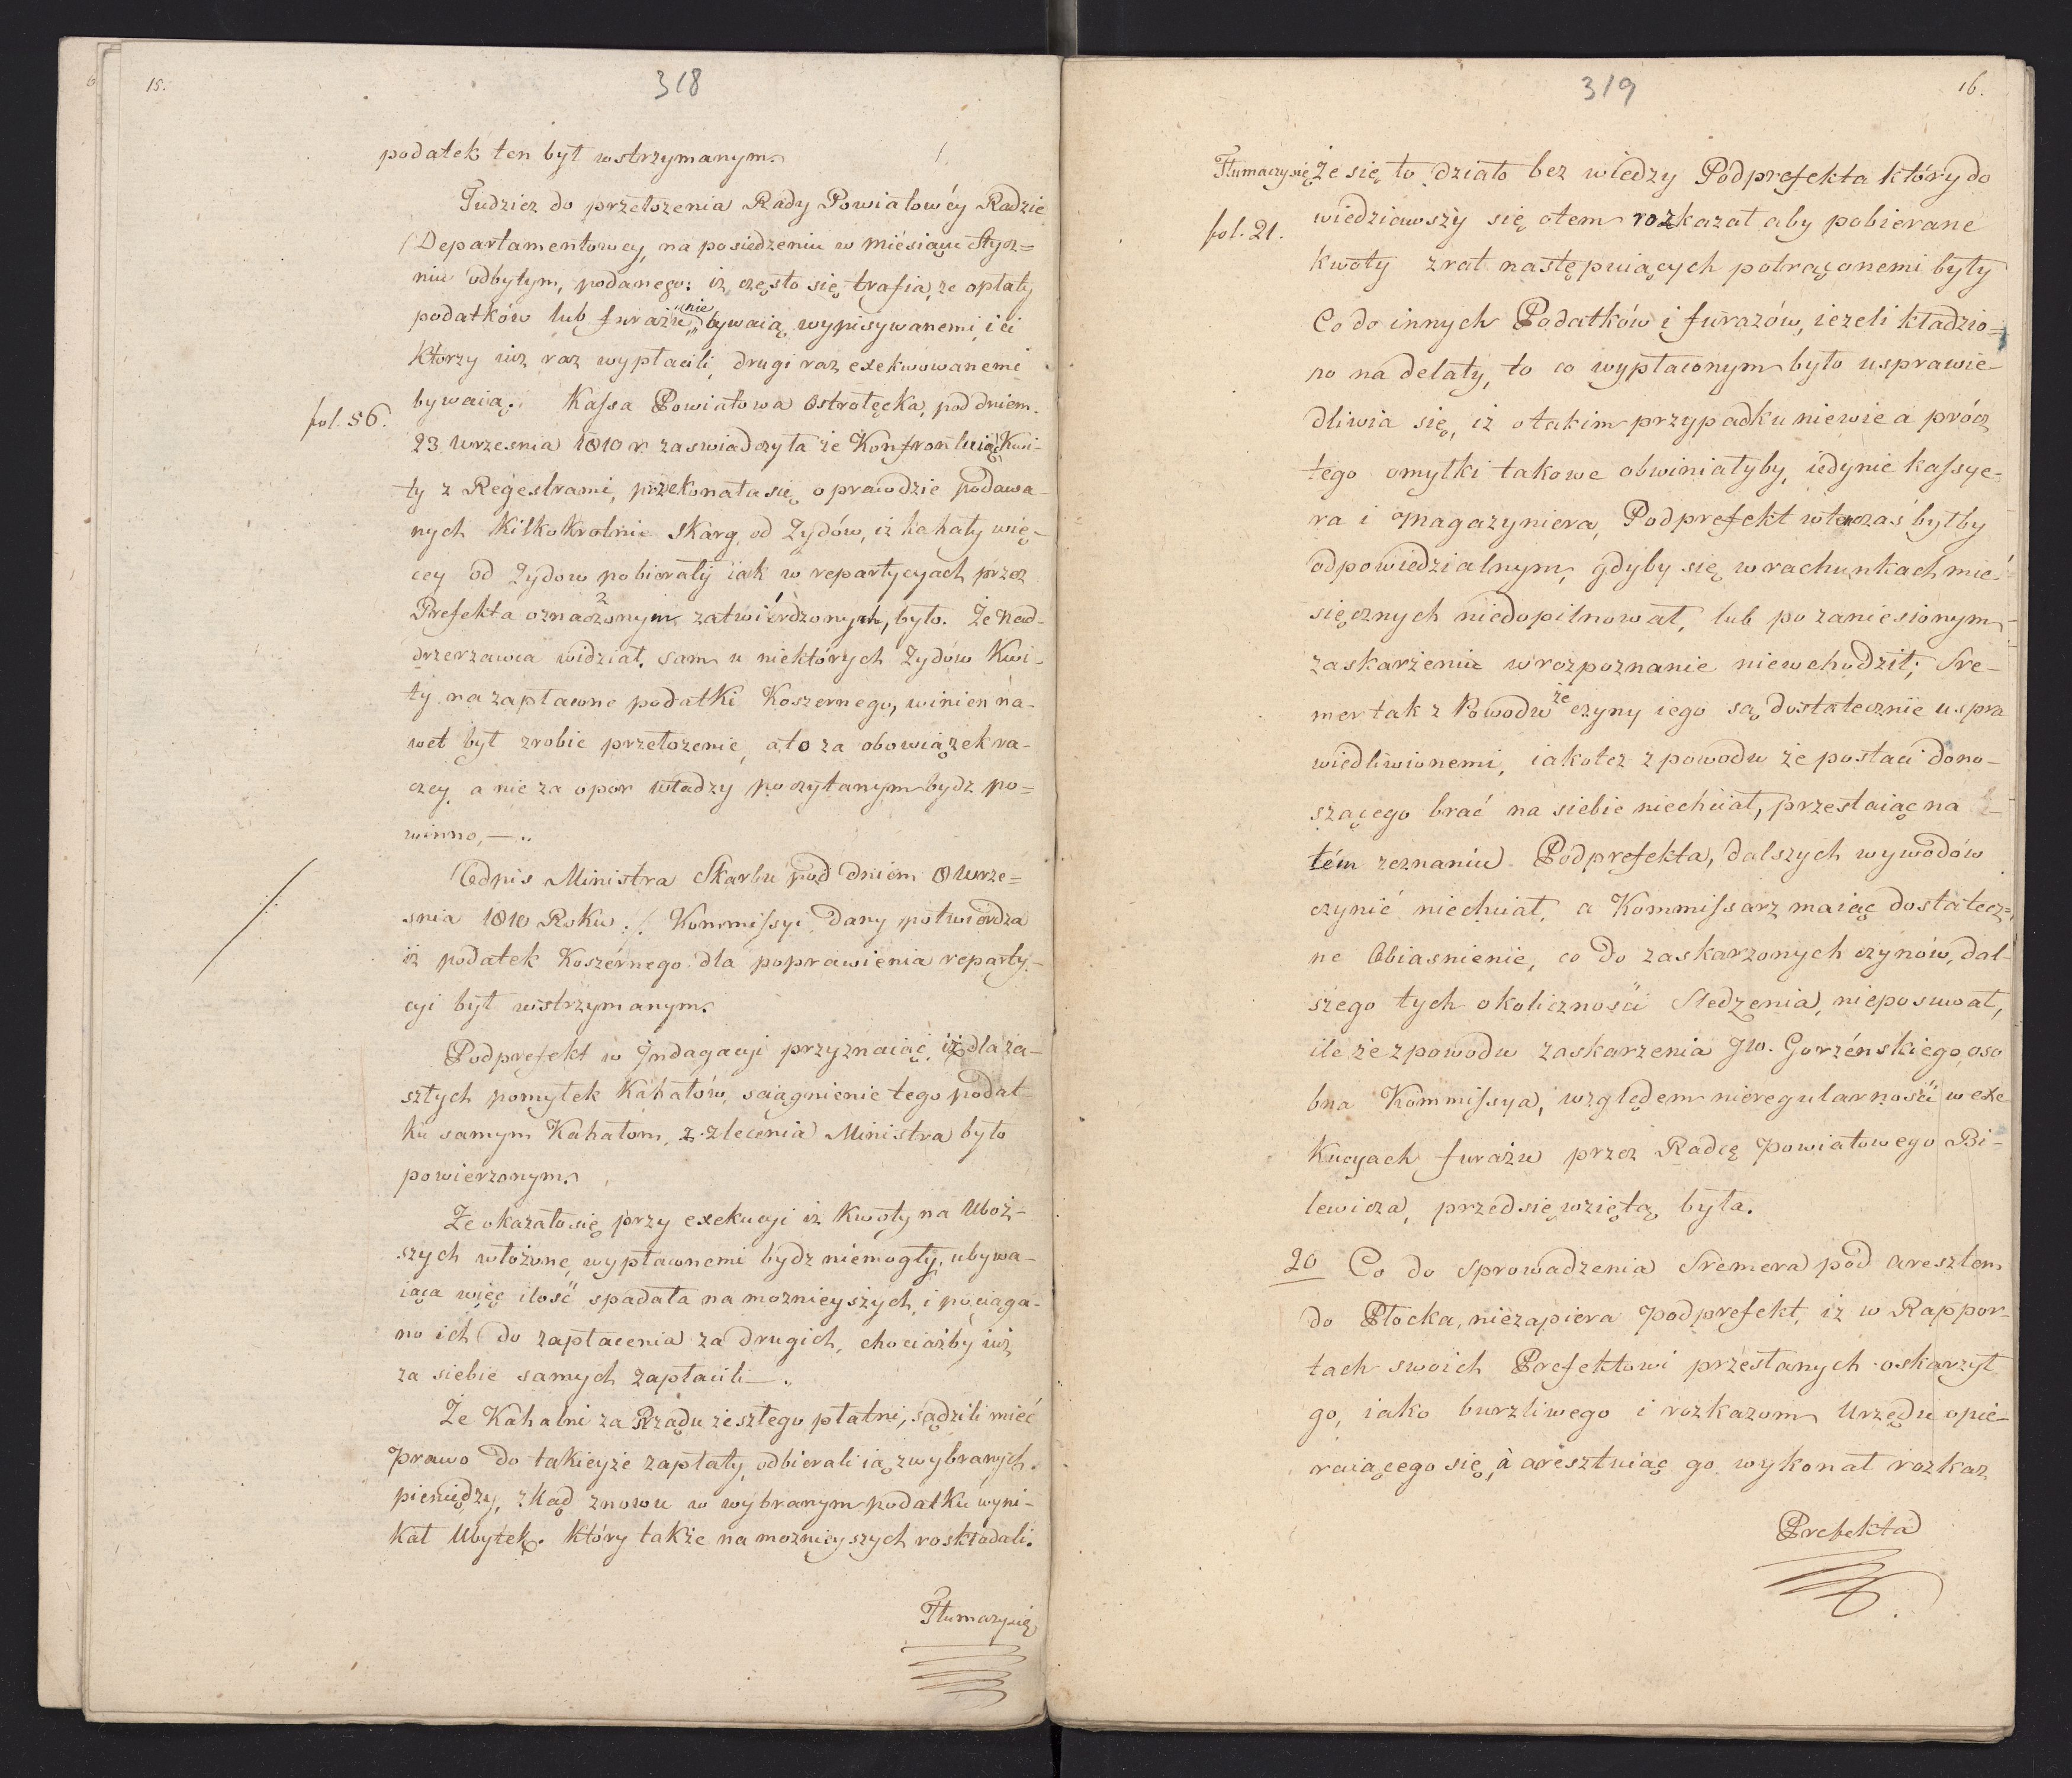 15.
318
podatek ten był wstrzymanym.
Tudzież do przełożenia Rady Powiatowéy Radzie
Departamentowey, na posiedzeniu w miésiącu Stycz=
niu odbytym, podanego: iż często się trafia, że opłaty
podatków lub furażu „nie„ bywaią wypisywanemi, i ci
którzy iuż raz wypłacili, drugi raz exekwowanemi
bywaią. Kassa Powiatowa Ostrołęcka, pod dniem
fol. 56.
23 Września 1810 r. zaswiadczyła że Konfrontuiąc Kwi-
ty z Regestrami, przekonała się o prawdzie podawa-
nych kilkokrotnie skarg od Żydów, iż kahały wię-
cey od Żydow pobierały iak w repartycyach przez
Prefekta oznaczonym zatwiérdzonych, było. Że nad-
drzerzawca widział, sam u niektórych Żydów Kwi-
ty na zapłacone podatki Koszernego, winien na-
wet był zrobic przełożenie, a to za obowiązek ra-
czey a nie za opor władzy poczytanym bydz po=
winno, — „
Odpis Ministra Skarbu pod dniem 8 Wrze=
snia 1810 Roku ./. Kommissyi dany potwierdza
iż podatek Koszérnego dla poprawienia reparty-
cyi był wstrzymanym.
Podprefekt w Indagacyi przyznaiąc, iż dla za-
szłych pomyłek Kahałów, sciągnienie tego podat
ku samym Kahałom, z zlecenia Ministra było
powierzonym.
Że okazało się przy exekucyi iż kwoty na Uboż-
szych włożone, wypłaconemi bydz niemogły, ubywa-
iąca więc ilość spadała na moznieyszych, i pociąga-
no ich do zapłacenia za drugich, chociażby iuż
za siebie samych zapłacili — „
Że Kahalni za Rządu zeszłego płatni, sądzili mieć
prawo do takieyże zapłaty, odbierali ią z wybranych
pieniędzy, zkąd znowu w wybranym podatku wyni-
kał Ubytek. który także na moznieyszych roskładali.
Tłumaczy się
319
16.
Tłumaczy się że się to działo bez wiedzy Podprefekta który do
wiedziawszy się otem rozkazał aby pobierane
fol. 21.
kwoty z rat następuiących potrąconemi były
Co do innych Podatków i furażów, ieżeli kładzio=
no na delaty, to co wypłaconym było usprawie-
dliwia się, iż o takim przypadku niewie a prócz
tego omyłki takowe obwiniałyby, iedynie kassye-
ra i Magazyniera, Podprefekt wtenczas byłby
odpowiedzialnym, gdyby się w rachunkach mie-
sięcznych niedopilnował, lub po zaniesionym
zaskarżeniu w rozpoznanie niewchodził; Sre-
mer tak z Powodu że czyny iego są dostatecznie uspra
wiedliwionemi, iakoteż z powodu że postaci dono-
szącego brać na siebie niechciał, przestaiąc na
tém zeznaniu Podprefekta, dalszych wywodów
czynić niechciał, a Kommissarz maiąc dostatecz=
ne Obiasnienie, co do zaskarzonych czynów, dal-
szego tych okoliczności sledzenia, nieposuwał,
ile że z powodu zaskarzenia JW. Gorzénskiego, oso
bna Kommissya, względem nieregularności w exe
kucyach furażu przez Radcę Powiatowego Bi-
lewicza, przedsięwziętą była.
20 Co do sprowadzenia Sremera pod aresztem
do Płocka, niezapiera Podprefekt, iż w Rappor-
tach swoich Prefektowi przesłanych oskarzył
go, iako burzliwego i rozkazom Urzędu opie-
raiącego się, à aresztuiąc go wykonał rozkaz
Prefekta